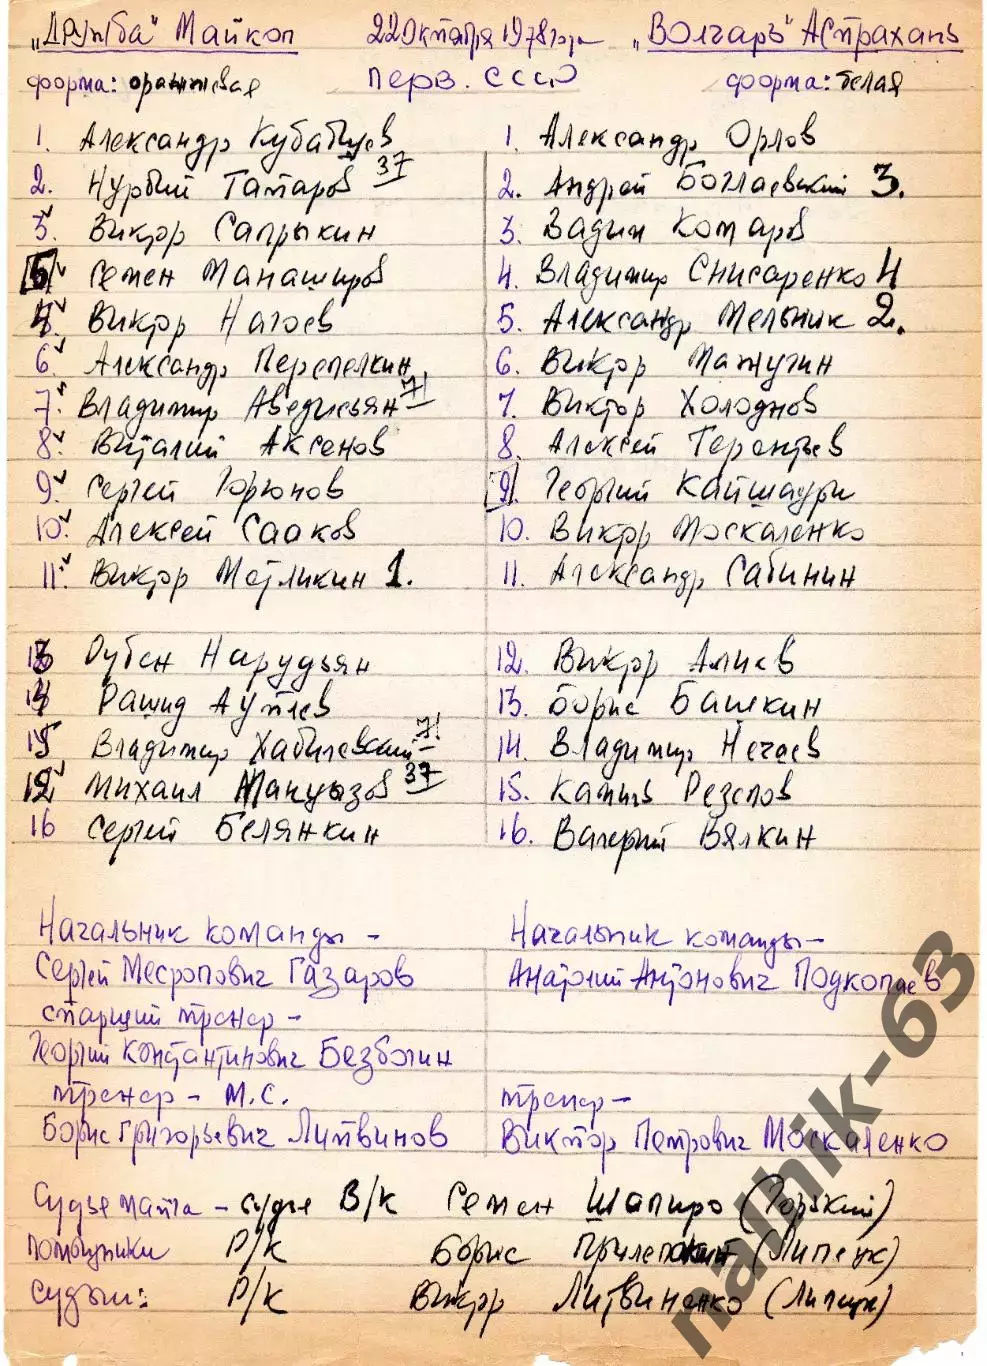 "Дружба" Майкоп 22 октября 1978 года "Волгарь" Астрахань
форма: оранжевая перв. СССР форма: белая
1. Александр Кубабцев 1. Александр Орлов
2. Нурбий Татаров 37 2. Андрей Боглаевский 3.
3. Виктор Сапрыкин 3. Вадим Комаров
5 Семен Манаширов 4. Владимир Снисаренко 4
4. Виктор Нагоев 5. Александр Мельник 2.
6. Александр Перепелкин 6. Виктор Мажугин
7. Владимир Аведисьян 71 7. Виктор Холоднов
8. Виталий Аксенов 8. Алексей Терентьев
9. Сергей Горюнов 9. Георгий Кайшаури
10. Алексей Сааков 10. Виктор Москаленко
11. Виктор Метликин 1. 11. Александр Сабинин
13 Рубен Нарудьян 12. Виктор Алиев
14 Рашид Аутлев 13. Борис Башкин
15 Владимир Хабилевский 71 14. Владимир Нечаев
12 Михаил 37 15. Резепов
16 Сергей Белянкин 16. Валерий Вялкин
Начальник команды - Начальник команды -
Сергей Месропович Газаров Анатолий Антонович Подкопаев
старший тренер -
Георгий Константинович Безбогин
тренер - М.С. тренер -
Борис Григорьевич Литвинов Виктор Петрович Москаленко
Судье матча - судье В/К Семен Шапиро (Горький)
помощники Р/К Борис Прилепский (Липецк)
судьи: Р/К Виктор Литвиненко (Липецк)
nalhik-63